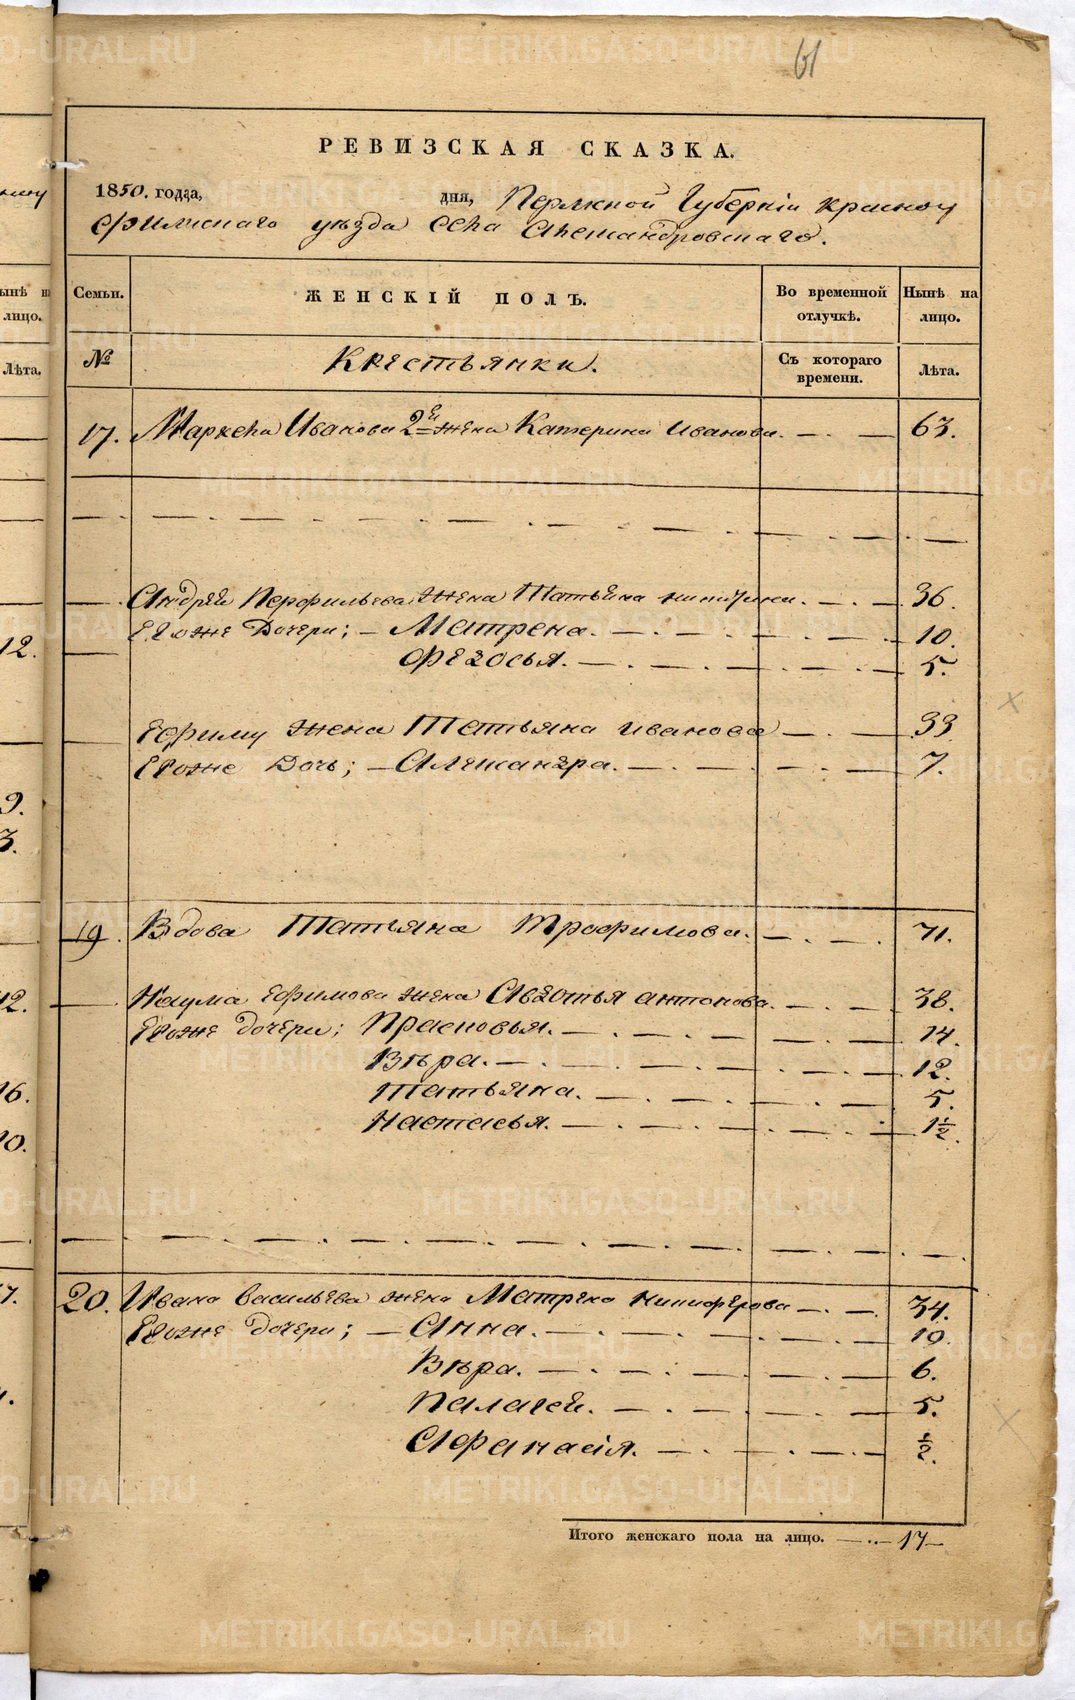 61
РЕВИЗСКАЯ СКАЗКА.
1850. года, дня, Пермской Губерніи Красноу
фимскаго уѣзда села Александровскаго.
Семьи. ЖЕНСКІЙ ПОЛЪ. Во временной отлучкѣ. Нынѣ на лицо.
№ Крестьянки. Съ котораго времени. Лѣта.
17. Маркела Иванова 2й жена Катерина Иванова. 63.
Андрей Перфильева жена Татьяна 36.
Его же Дочери; Матрена. 10.
Федосья. 5.
Ефиму жена Татьяна Иванова 33
Его же Дочь; Александра. 7.
19. Вдова Татьяна Трофимова. 71.
Наума Ефимова жена Авдотья Антонова. 38.
Его же дочери; Прасковья. 14.
Вѣра. 12.
Татьяна. 5.
Настасья. 1½.
20. Ивана Васильева жена Матрена Никифорова 34.
Его же дочери; Анна. 10.
Вѣра. 6.
Палагея. 5.
Афанасія. ½.
Итого женскаго пола на лицо. 17
METRIKI.GASO-URAL.RU